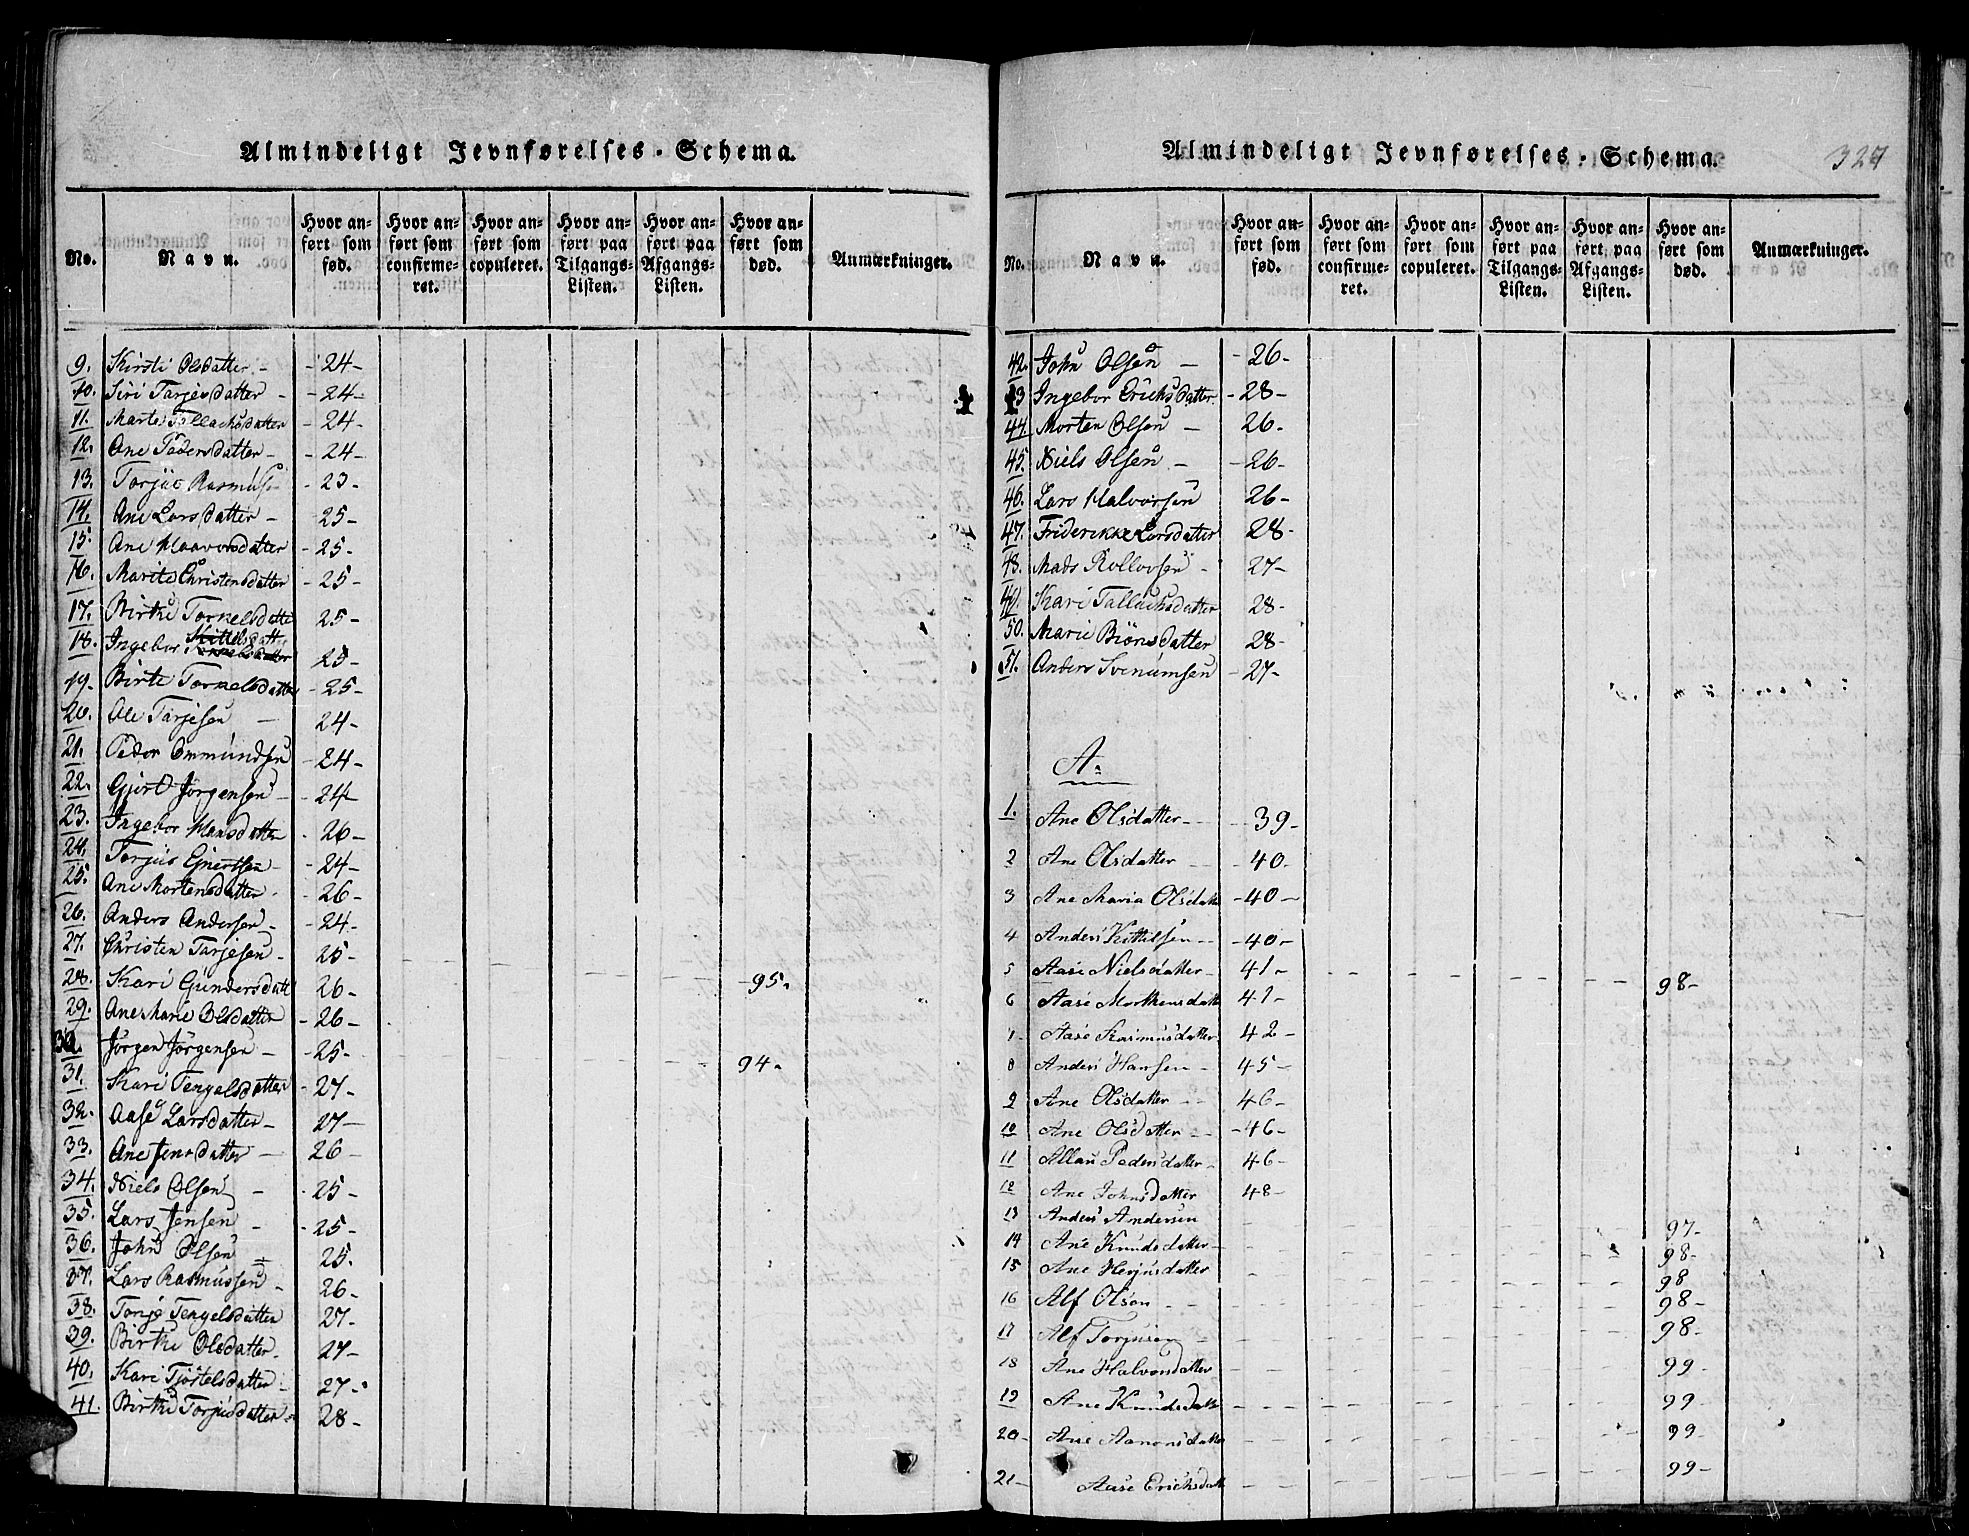 Almindeligt Jevnførelses-Schema.
No.
Navn.
Hvor anført som fød.
Hvor anført som confirmeret.
Hvor anført som copuleret.
Hvor anført paa Tilgangs-Listen.
Hvor anført paa Afgangs-Listen.
Hvor anført som død.
Anmærkninger.
9. Kirsti Olsdatter - 24-
10. Siri Tarjesdatter - 24-
11. Marte Tallachsdatter - 24
12. Ane Pedersdatter - 24-
13. Torjus Rasmuss - 23-
14. Ane Larsdatter - 25-
15. Ane Haavorsdatter - 25-
16. Marite Christensdatter - 25-
17. Birthe Torkelsdatte 25-
18. Ingebor Kittelsdatter 25-
19. Birte Torkelsdatter - 25-
20. Ole Tarjesen - 24-
21. Peder Ommundsen - 24-
22. Gjert Jørgensen - 24-
23. Ingebor Hansdatter - 26-
24. Torjus Gjertsen - 24-
25. Ane Mortensdatter - 26-
26. Anders Andersen - 24-
27. Christen Tarjesen - 25-
28. Kari Gundersdatt 26- 95.
29. Ane Marie Olsdatter - 26-
30. Jørgen Jørgensen - 25- 94.
31. Kari Tengelsdatter - 27-
32. Aase Larsdatter - 27-
33. Ane Jensdatter - 26-
34. Niels Olsen - 25-
35. Lars Jensen - 25-
36. John Olsen 25.
37. Lars Rasmussen - 26-
38. Tonje Tengelsdatter 27-
39. Birthe Olsdatter - 27-
40. Kari Tjöstelsdatter - 27-
41. Birthe Torjusdatter 28-
Almindeligt Jevnførelses-Schema.
327
No.
Navn.
Hvor anført som fød.
Hvor anført som confirmeret.
Hvor anført som copuleret.
Hvor anført paa Tilgangs-Listen.
Hvor anført paa Afgangs-Listen.
Hvor anført som død.
Anmærkninger.
42. John Olsen - 26-
43 Ingebor Erichsdatter - 28-
44. Morten Olsen - 26-
45. Niels Olsen - 26-
46. Lars Halvorsen 26-
47. Friderikke Larsdatter 28-
48. Mads Rollovsen - 27-
49. Kari Tallachsdatter 28-
50. Marie Biönsdatter 28-
51. Anders Svenumsen - 27-
A.
1. Ane Olsdatter - 39-
2 Ane Olsdatter - 40-
3 Ane Maria Olsdatt - 40-
4 Anders Kittilsen - 40-
5 Aase Nielsdatter - 41- 98-
6 Aase Morthensdatt 41-
7 Aase Rasmusdatter 42-
8 Anders Hansen - 45-
9 Ane Olsdatter - 46-
10 Ane Olsdatter - 46-
11 Allau Pedersdatter - 46-
12 Ane Johnsdatter 48-
13 Anders Andersen 97-
14 Ane Knudsdatter 98-
15 Ane Herjusdatter 98
16 Alf Olson 98-
17 Alf Torjusen 98-
18 Ane Halvorsdatter 99
19 Ane Knudsdatt 99
20- Ane Aanonsdatter 99
21- Aase Erichsdatt 99-